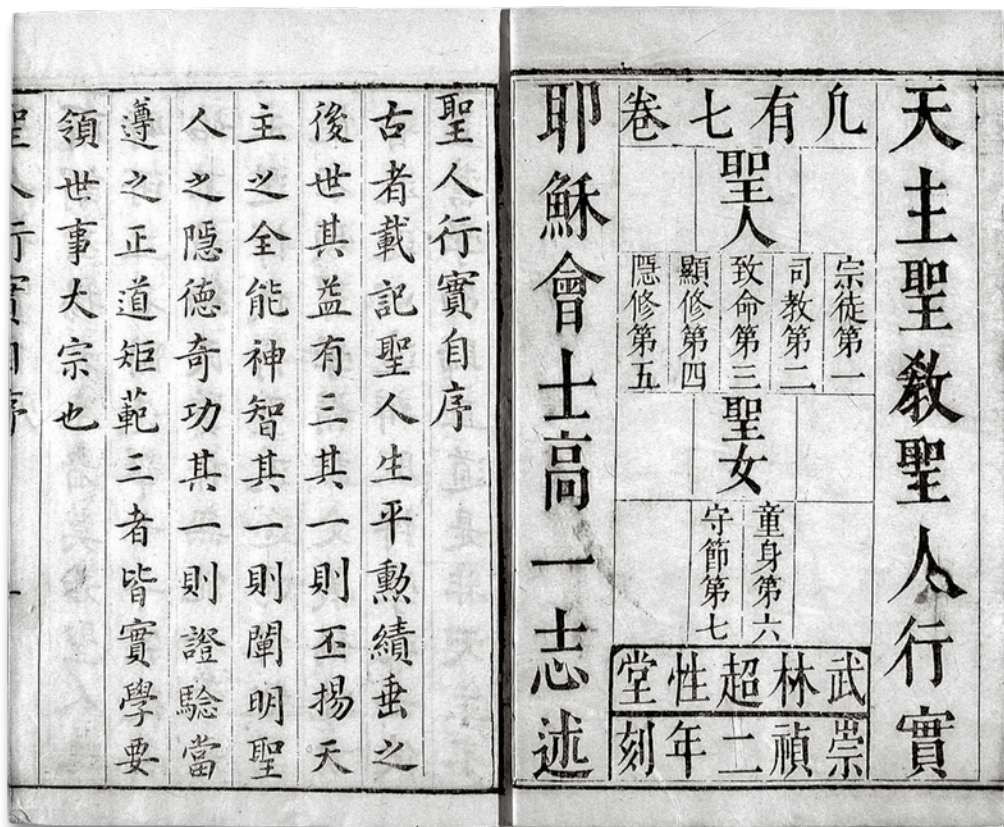 天主聖敎聖人行實
凡有七卷
聖人
宗徒第一
司教第二
致命第三
顯修第四
隱修第五
聖女
童身第六
守節第七
武林超性堂
崇禎二年刻
耶穌會士高一志述
聖人行實自序
古者載記聖人生平勳績垂之
後世其益有三其一則丕揚天
主之全能神智其一則闡明聖
人之隱德奇功其一則證驗當
遵之正道矩範三者皆實學要
領世事大宗也
聖人行實自序 一